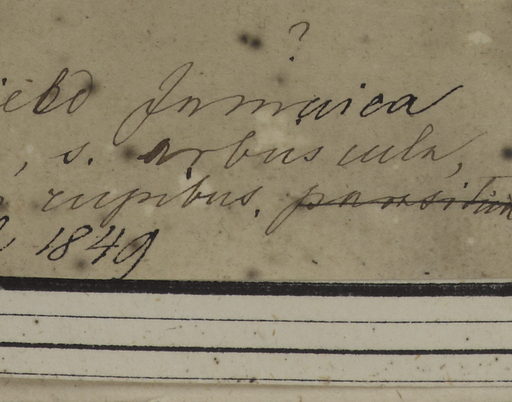 ?
ield Jamaica
, s. arbuscula,
rupibus. parasitica
1849